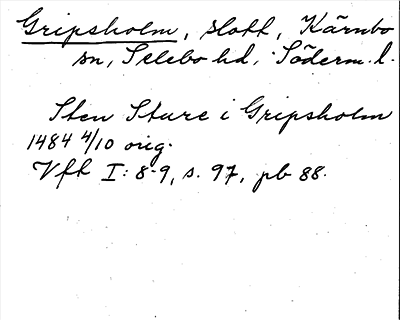 Gripsholm, slott, Kärnbo
sn, Selebo hd, Söderm. l.
Sten Sture i Gripsholm
1484 4/10 orig.
Vfk I: 8-9, s. 97, pb 88.